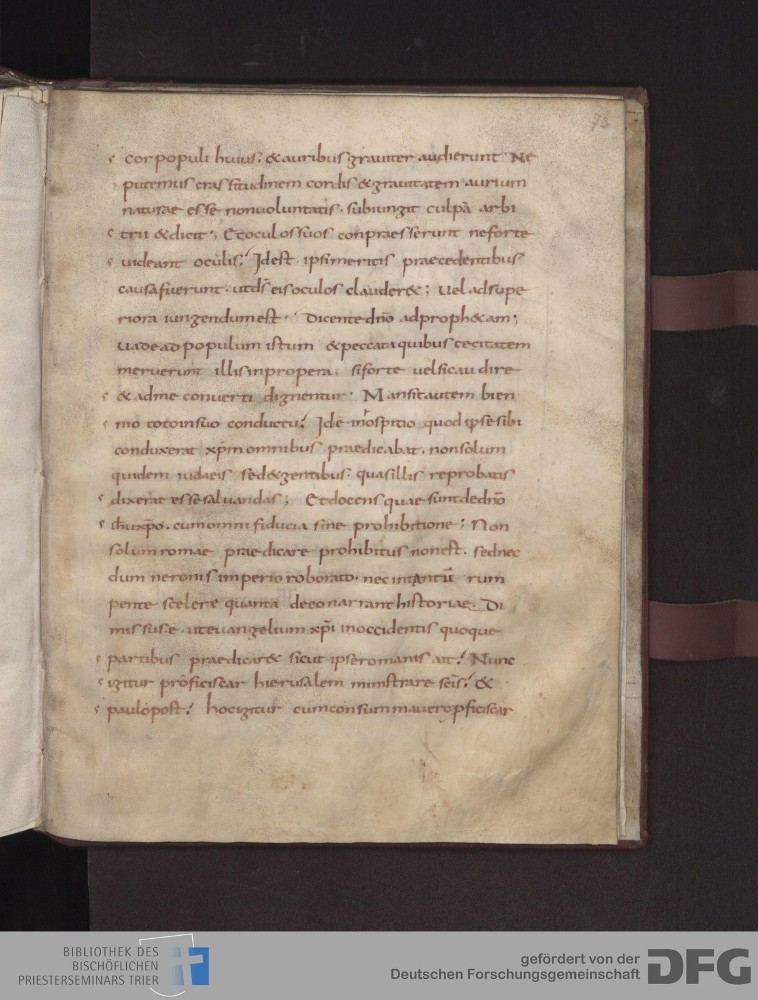 98
cor populi huius; & auribus grauiter audierunt Ne
putemus crassitudinem cordis & grauitatem aurium
naturae esse non uoluntatis. subiungit culpā arbi
trii & dicit; Et oculos suos conpraesserunt ne forte
uideant oculis; Idest ipsi meritis praecedentibus
causa fuerunt. ut dš eis oculos clauder&; uel ad supe
riora iungendum est. Dicente dño ad proph&am;
uade ad populum istum & peccata quibus cecitatem
meruerunt illis inpropera. si forte uel sic audire
& ad me conuerti dignentur. Mansit autem bien
nio toto in suo conductu; Id e in hospitio quod ipse sibi
conduxerat xp̄m omnibus praedicabat. non solum
quidem iudaeis sed & gentibus. quas illis reprobatis
dixerat esse saluandas; Et docens quae sunt de dño
ihu xp̄o. cum omni fiducia sine prohibitione; Non
solum romae praedicare prohibitus non est. sed nec
dum neronis imperio roborato. nec in tantū rum
pente scelere quanta de eo narrant historiae. Di
missus e. ut euangelium xp̄i in occidentis quoque
partibus praedicar& sicut ipse romanis ait; Nunc
igitur proficiscar hierusalem ministrare scīs; &
paulo post; hoc igitur cum consummauero pficiscar
BIBLIOTHEK DES
BISCHÖFLICHEN
PRIESTERSEMINARS TRIER
gefördert von der
Deutschen Forschungsgemeinschaft
DFG